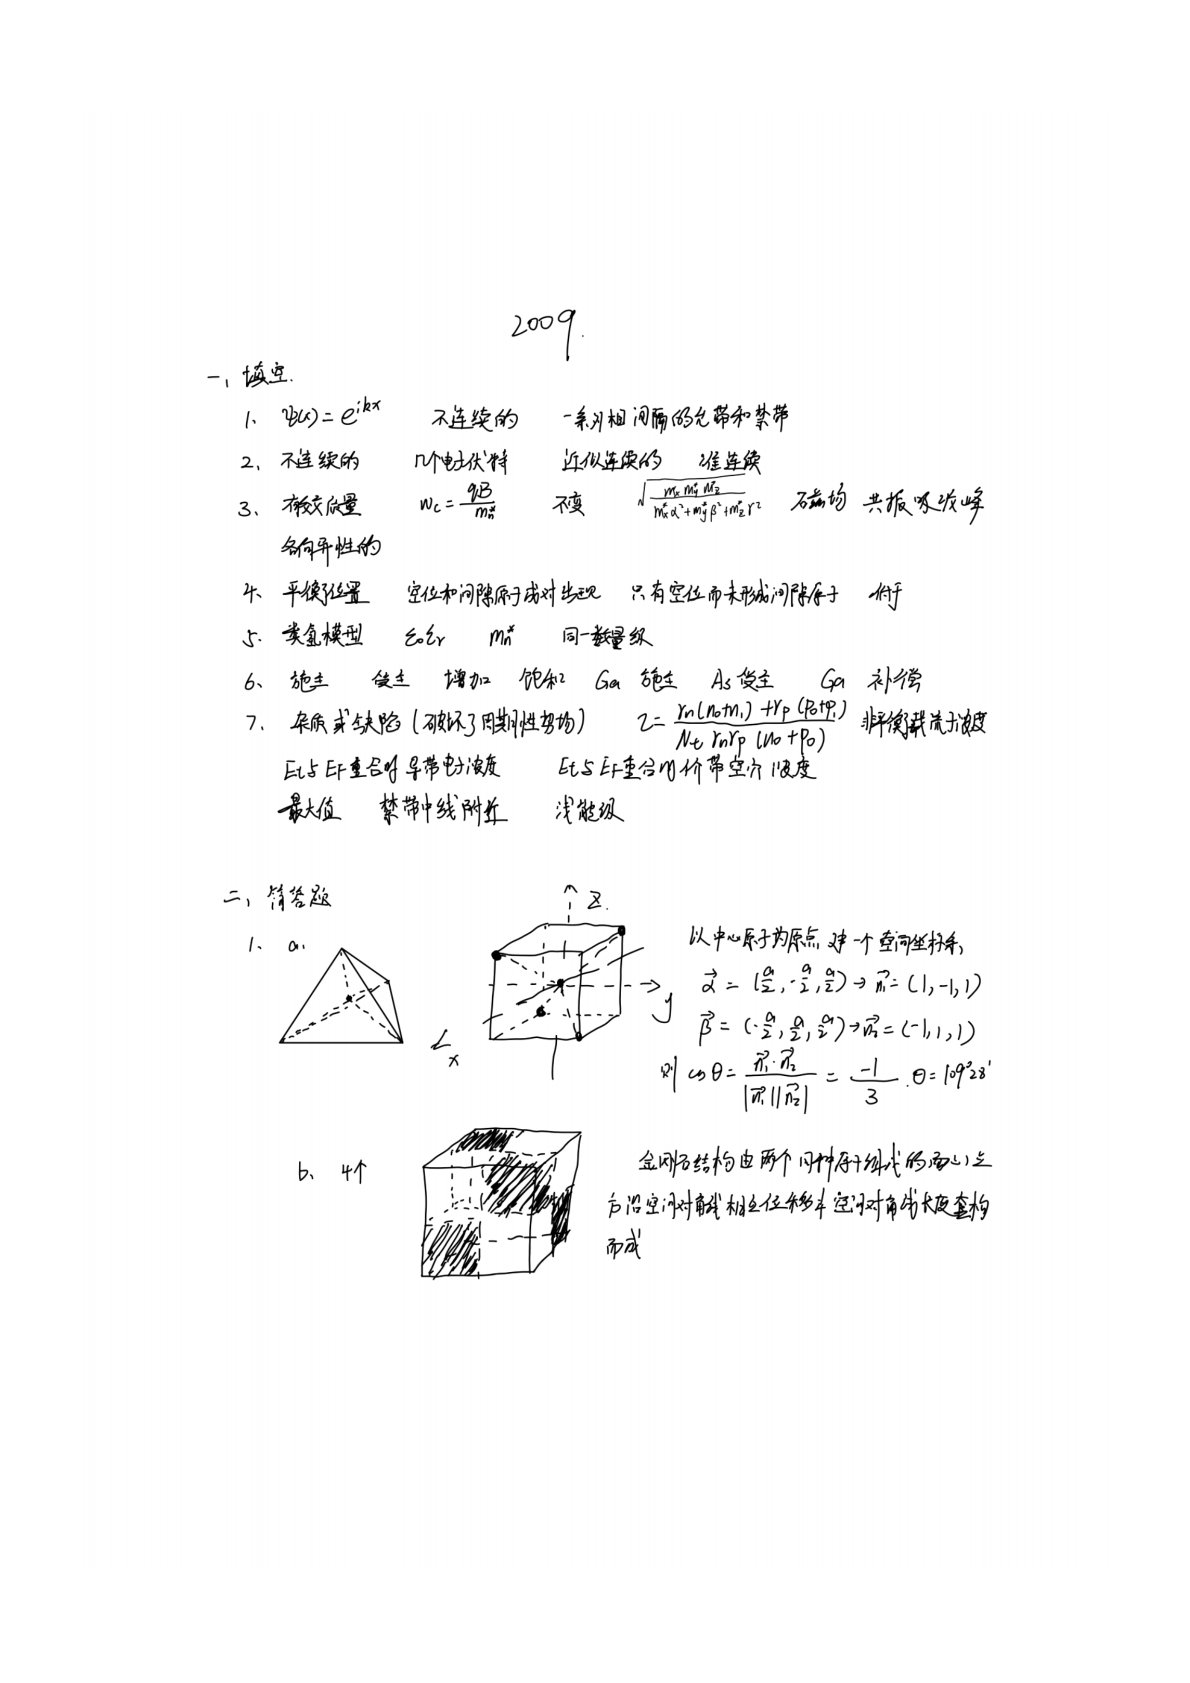 2009.
一、填空.
1、 ψ(x)=e^{ikx} 不连续的 一系列相间隔的允带和禁带
2、 不连续的 几个电子伏特 近似连续的 准连续
3、 有效质量 Wc=qB/m_n^* 不变 √(m_x^* m_y^* m_z^*/(m_x^*α²+m_y^*β²+m_z^*γ²)) 磁场 共振吸收峰
各向异性的
4、 平衡位置 空位和间隙原子成对出现 只有空位而未形成间隙原子 低于
5. 类氢模型 ε₀εr m_n^* 同一数量级
6、 施主 受主 增加 饱和 Ga 施主 As 受主 Ga 补偿
7. 杂质或缺陷 (破坏了周期性势场) τ=(r_n(n₀+n₁)+r_p(p₀+p₁))/(N_t r_n r_p (n₀+p₀)) 非平衡载流子浓度
Et与EF重合时导带电子浓度 Et与EF重合时价带空穴浓度
最大值 禁带中线附近 浅能级
二、简答题
1. a.
z.
y
x
以中心原子为原点 建一个空间坐标系,
α⃗=(a/2,-a/2,a/2)→n₁⃗=(1,-1,1)
β⃗=(-a/2,a/2,a/2)→n₂⃗=(-1,1,1)
则 cosθ=n₁⃗·n₂⃗/|n₁⃗||n₂⃗|=-1/3 .θ=109°28'
b、 4个
金刚石结构由两个同种原子组成的面心立
方沿空间对角线相互位移¼空间对角线长度套构
而成